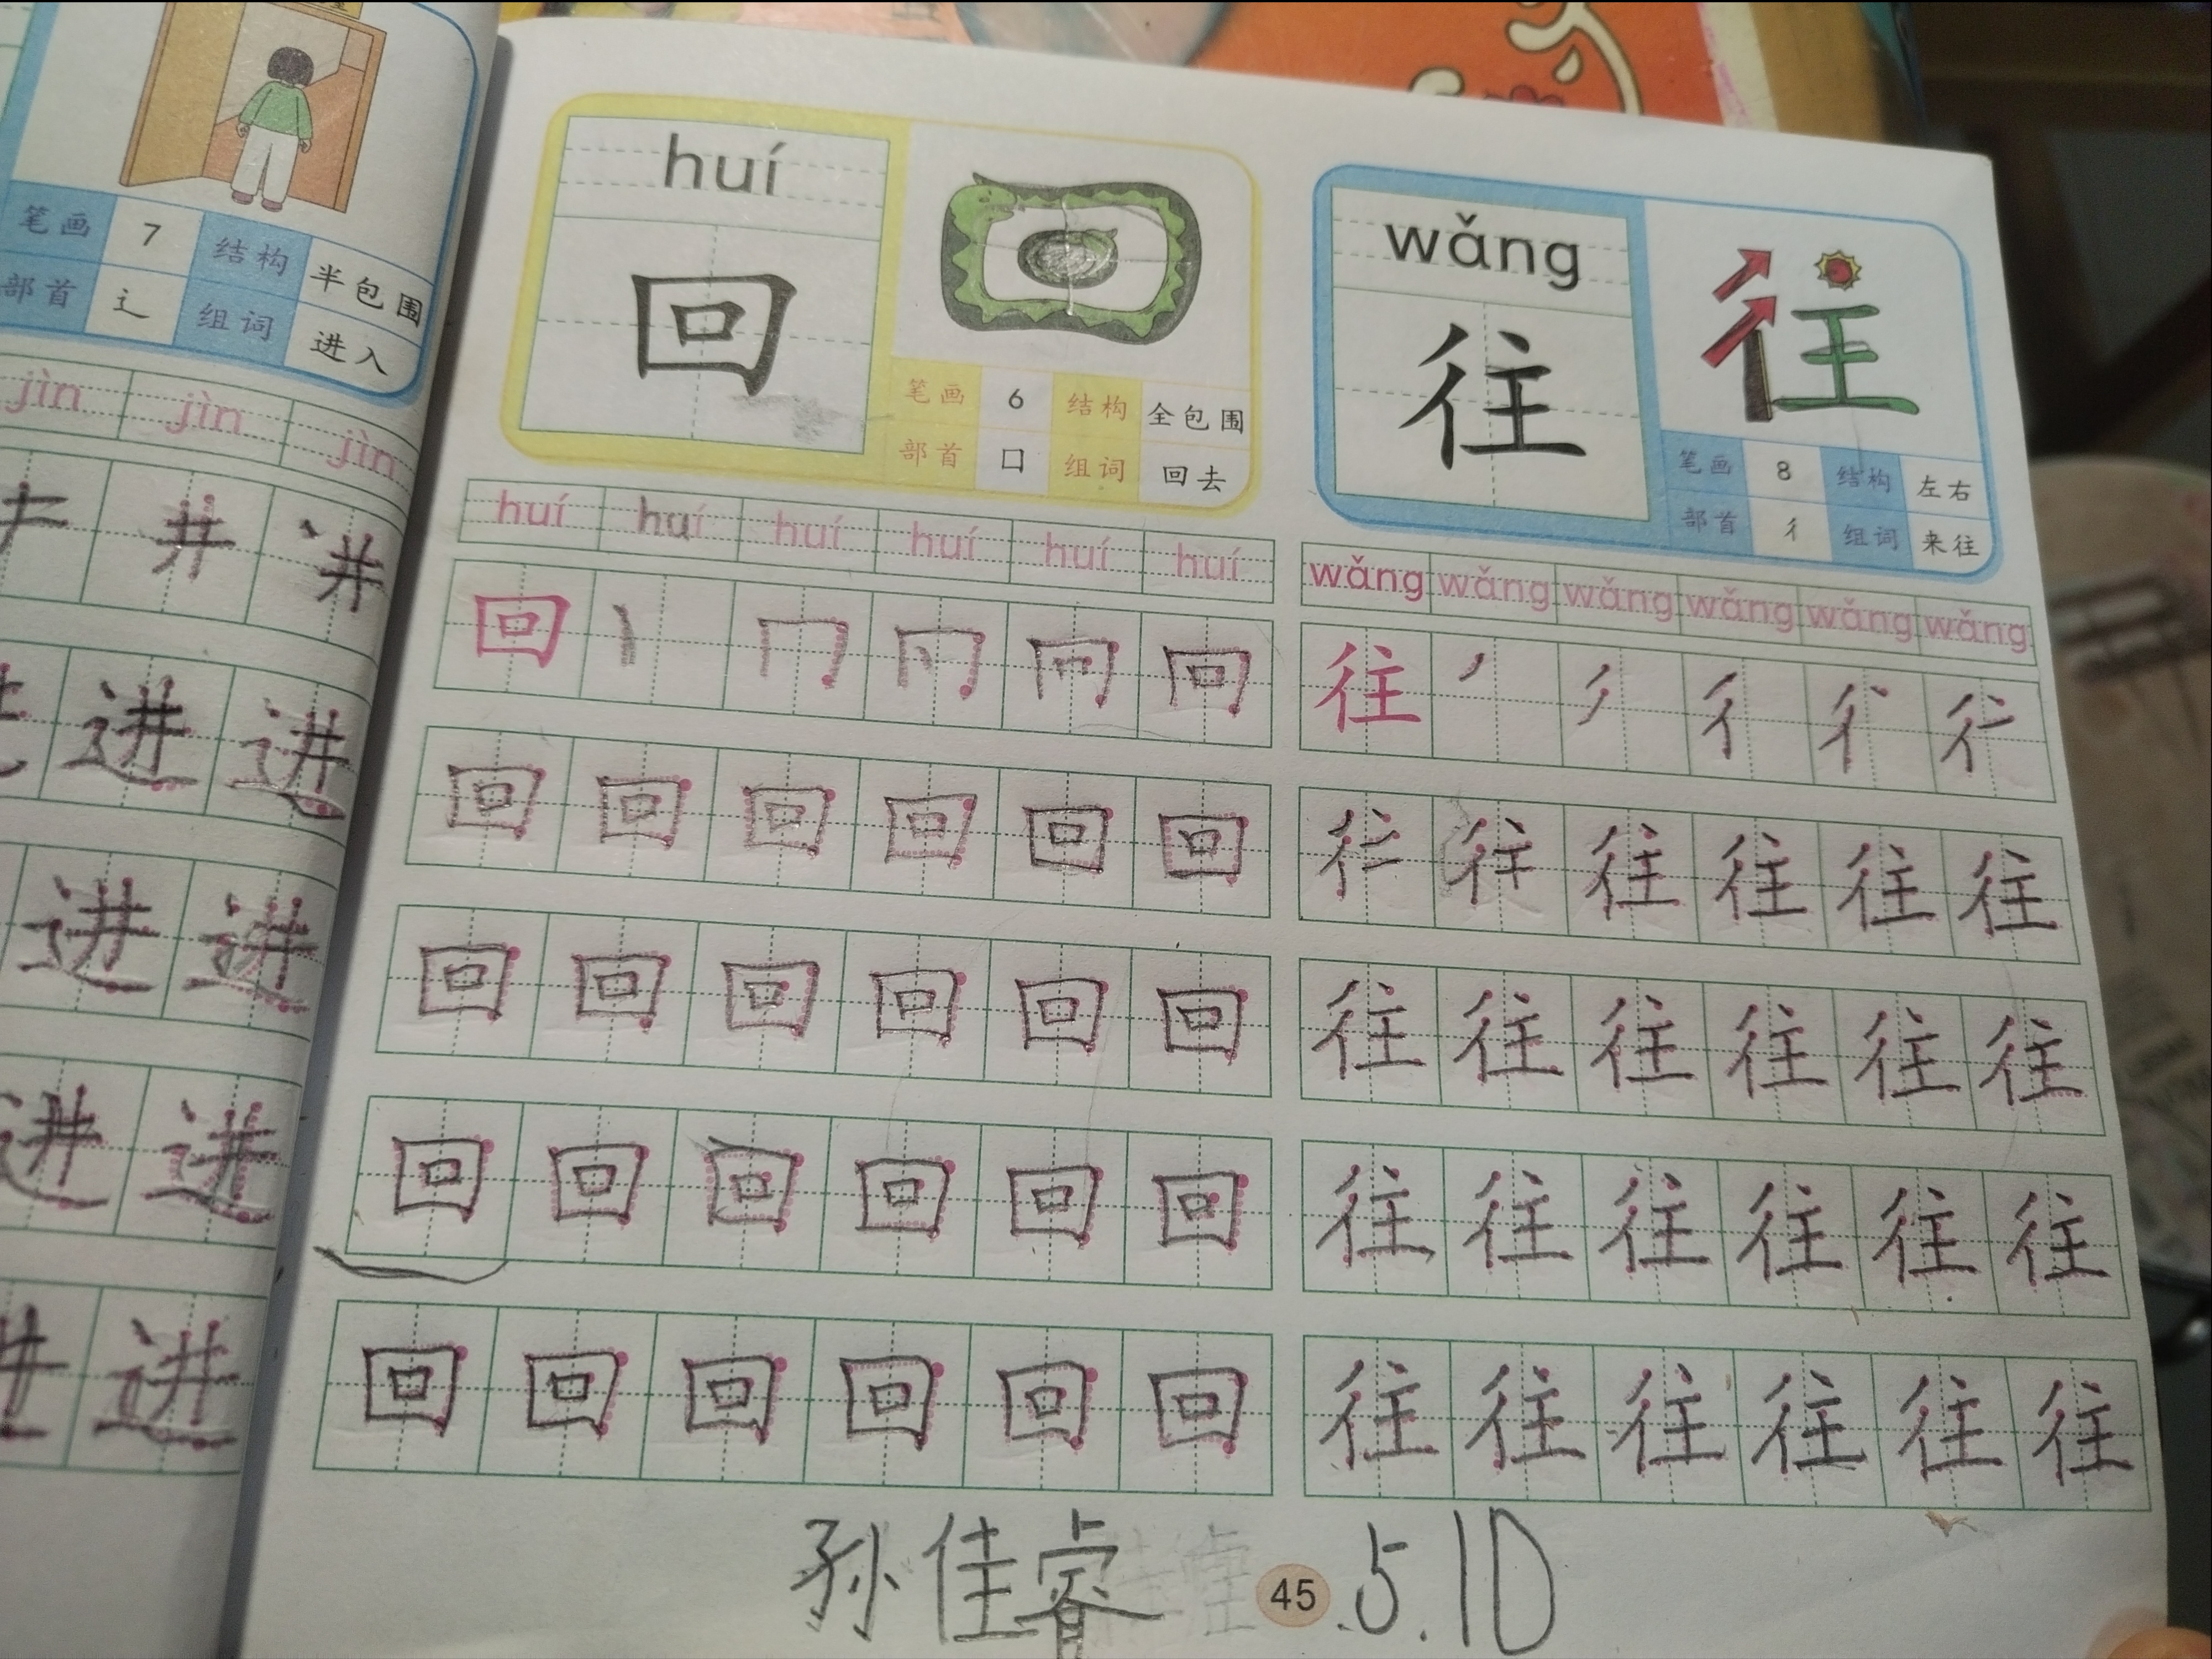 笔画 7 结构 半包围
部首 辶 组词 进入
jìn jìn jìn
井 进
进 进
进 进
进 进
进
huí
回
笔画 6 结构 全包围
部首 口 组词 回去
huí huí huí huí huí huí
回 丨 冂 回
回 回 回 回 回 回
回 回 回 回 回 回
回 回 回 回 回 回
回 回 回 回 回 回
wǎng
往
往
笔画 8 结构 左右
部首 彳 组词 来往
wǎng wǎng wǎng wǎng wǎng wǎng
往 丿 彳
往 往 往 往
往 往 往 往 往 往
往 往 往 往 往 往
往 往 往 往 往 往
孙佳睿 45 .5.10